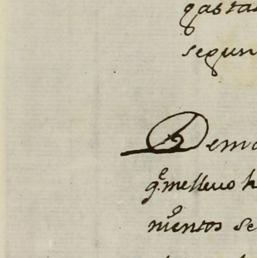 gasta
segun
Dem
q.e me lleuo h
mientos se